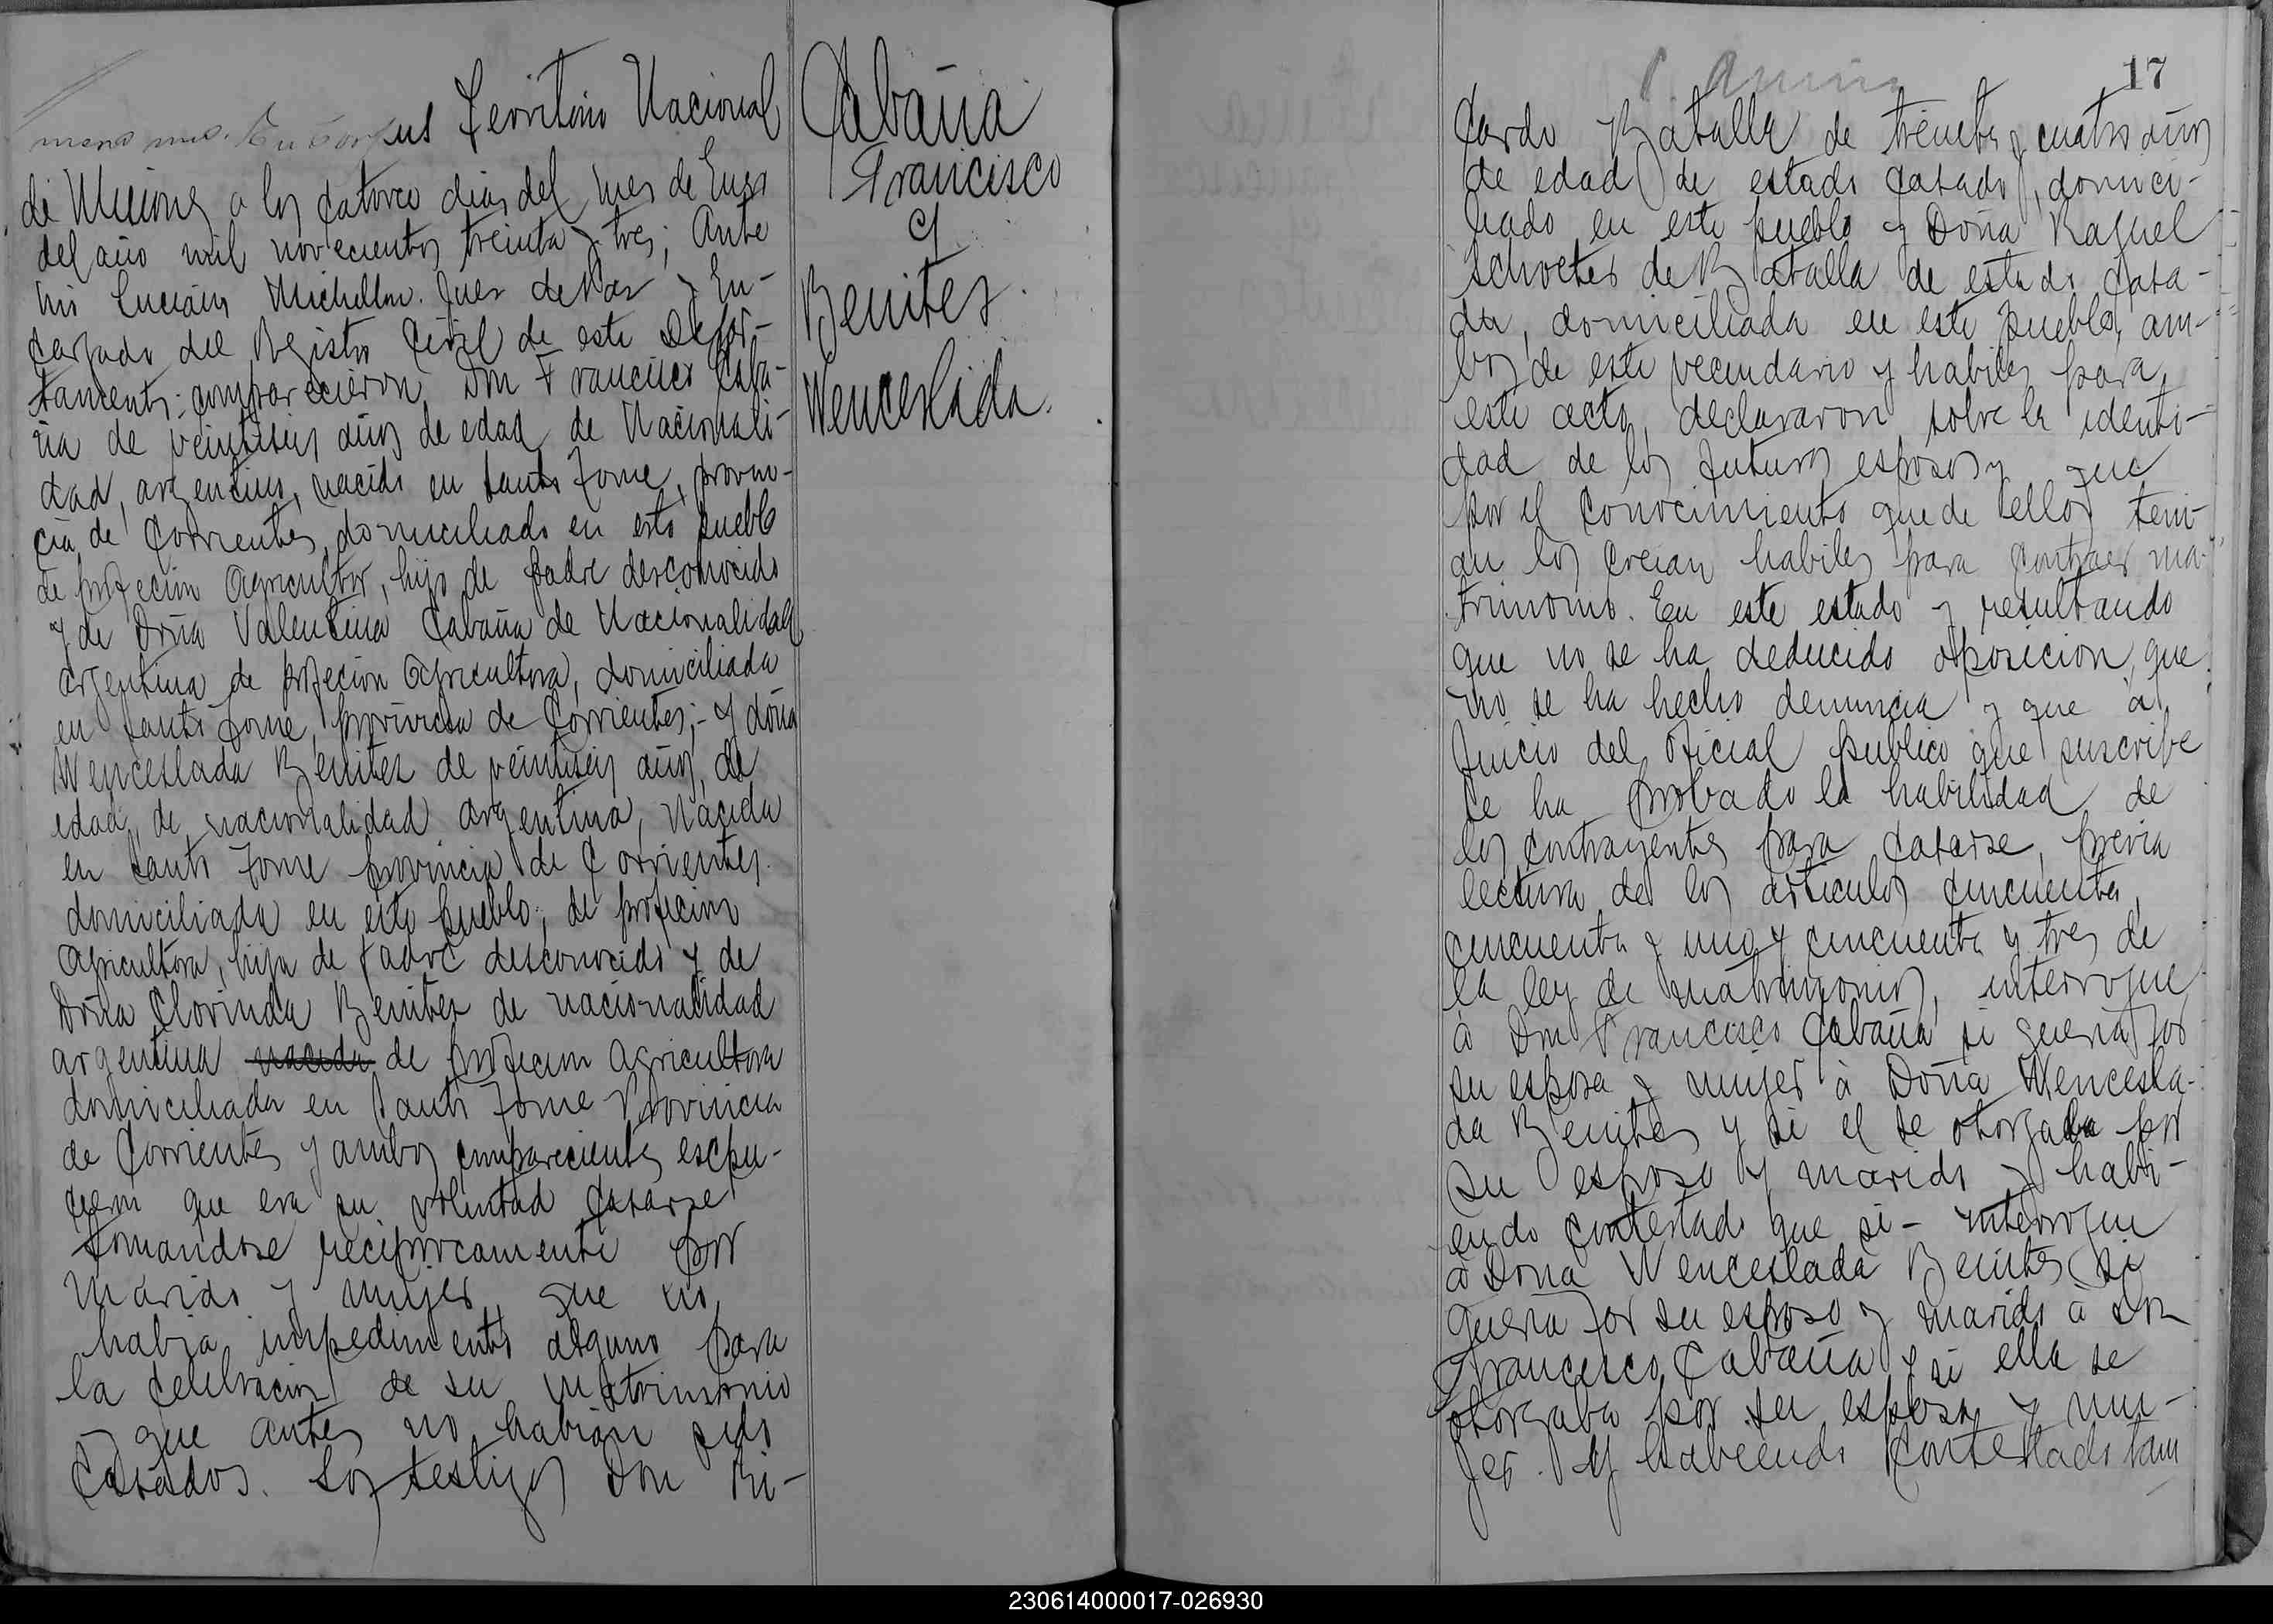 mero uno. En Corpus Territorio Nacional
de Misiones a los catorce dias del mes de Enero
del año mil novecientos treinta y tres; Ante
mi Luciano Juez de Paz y En-
cargado del Registro Civil de este Depar-
tamento; comparecieron Don Francisco Caba-
ña de veintiseis años de edad de Nacionali-
dad, argentino, nacido en Santo Tome, provin-
cia de Corrientes, domiciliado en este pueblo
de profecion Agricultor, hijo de padre desconocido
y de Doña Valentina Cabaña de Nacionalidad
argentina de profecion Agricultora, domiciliada
en Santo Tome, provincia de Corrientes;- y doña
Wenceslada Benitez de veintiseis años, de
edad, de nacionalidad argentina, nacida
en Santo Tome provincia de Corrientes.
domiciliada en este pueblo, de profecion
Agricultora, hija de padre desconocido y de
Doña Clorinda Benitez de nacionalidad
argentina nacida de profecion agricultora
domiciliada en Santo Tome Provincia
de Corrientes y ambos comparecientes espu-
cieron que era su voluntad casarse
tomandose reciprocamente por
marido y mujer, que no
habia impedimento alguno para
la celebracion de su matrimonio
y que antes no habian sido
casados. Los testigos Don Ri-
Cabaña
Francisco
y
Benitez
Wenceslada.
17
cardo Batalla de treinta y cuatro años
de edad de estado casado, domici-
liado en este pueblo y Doña Raquel
Schoeter de Batalla de estado casa-
da, domiciliada en este pueblo, am-
bos de este vecindario y habiles para
este acto, declararon sobre la identi-
dad de los futuros esposos y que
por el conocimiento que de ellos teni-
an los creian habiles para contraer ma-
trimonio. En este estado y resultando
que no se ha deducido oposicion, que
no se ha hecho denuncia y que á
juicio del oficial publico que suscribe
se ha probado la habilidad de
los contrayentes para casarse, previa
lectura de los articulos cincuenta,
cincuenta y uno y cincuenta y tres de
la ley de matrimonio, interrogue
à Don Francisco Cabaña si queria por
su esposa y mujer à Doña Wencesla-
da Benitez y si el se otorgaba por
su esposo y marido y habi-
endo contestado que si- interrogue
à Doña Wenceslada Benitez si
queria por su esposo y marido à Don
Francisco Cabaña y si ella se
otorgaba por su esposa y mu-
jer. Y habiendo contestado tam
230614000017-026930